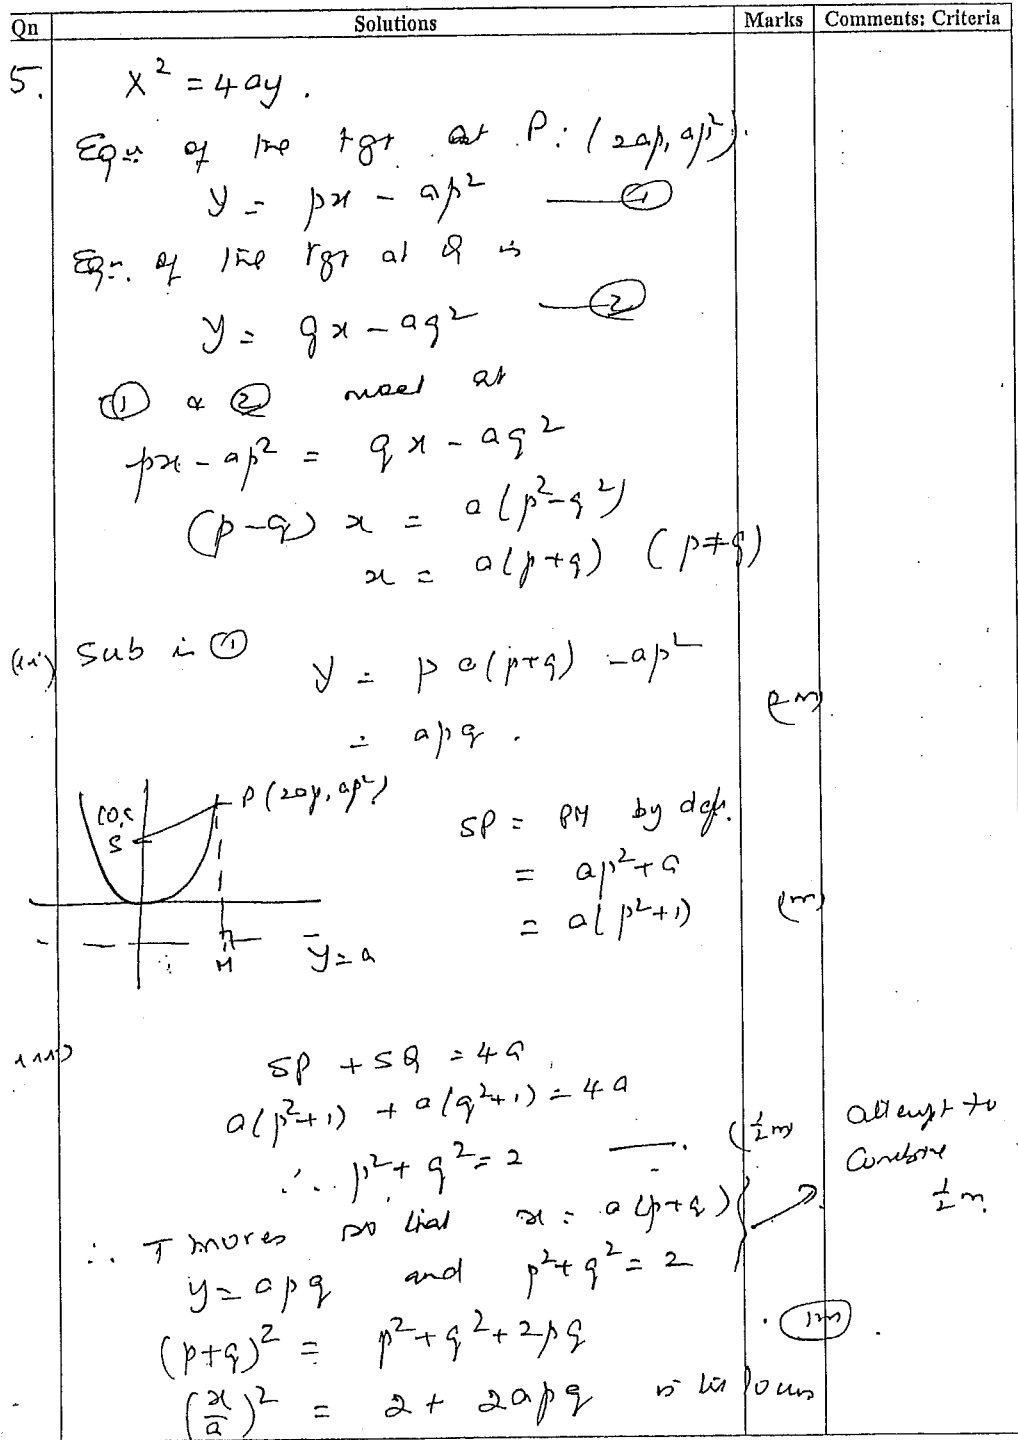 Qn Solutions Marks Comments: Criteria
5. x² = 4ay.
Eqn of the tgt at P: (2ap, ap²).
y = px - ap² —①
Eqn. of the tgt at Q is
y = qx - aq² —②
① & ② meet at
px - ap² = qx - aq²
(p-q) x = a(p²-q²)
x = a(p+q) (p≠q)
(ii) Sub in ① y = p a(p+q) - ap²
= apq. 2m
P(2ap, ap²)
S
M
y = a
SP = PM by def.
= ap²+a
= a(p²+1) 1m
iii) SP + SQ = 4a
a(p²+1) + a(q²+1) = 4a
∴ p²+q² = 2 —. (½m
attempt to
combine
½m
∴ T moves so that x = a(p+q)
y = apq and p²+q² = 2
(p+q)² = p²+q²+2pq . 1m .
(x/a)² = 2 + 2apq is the locus